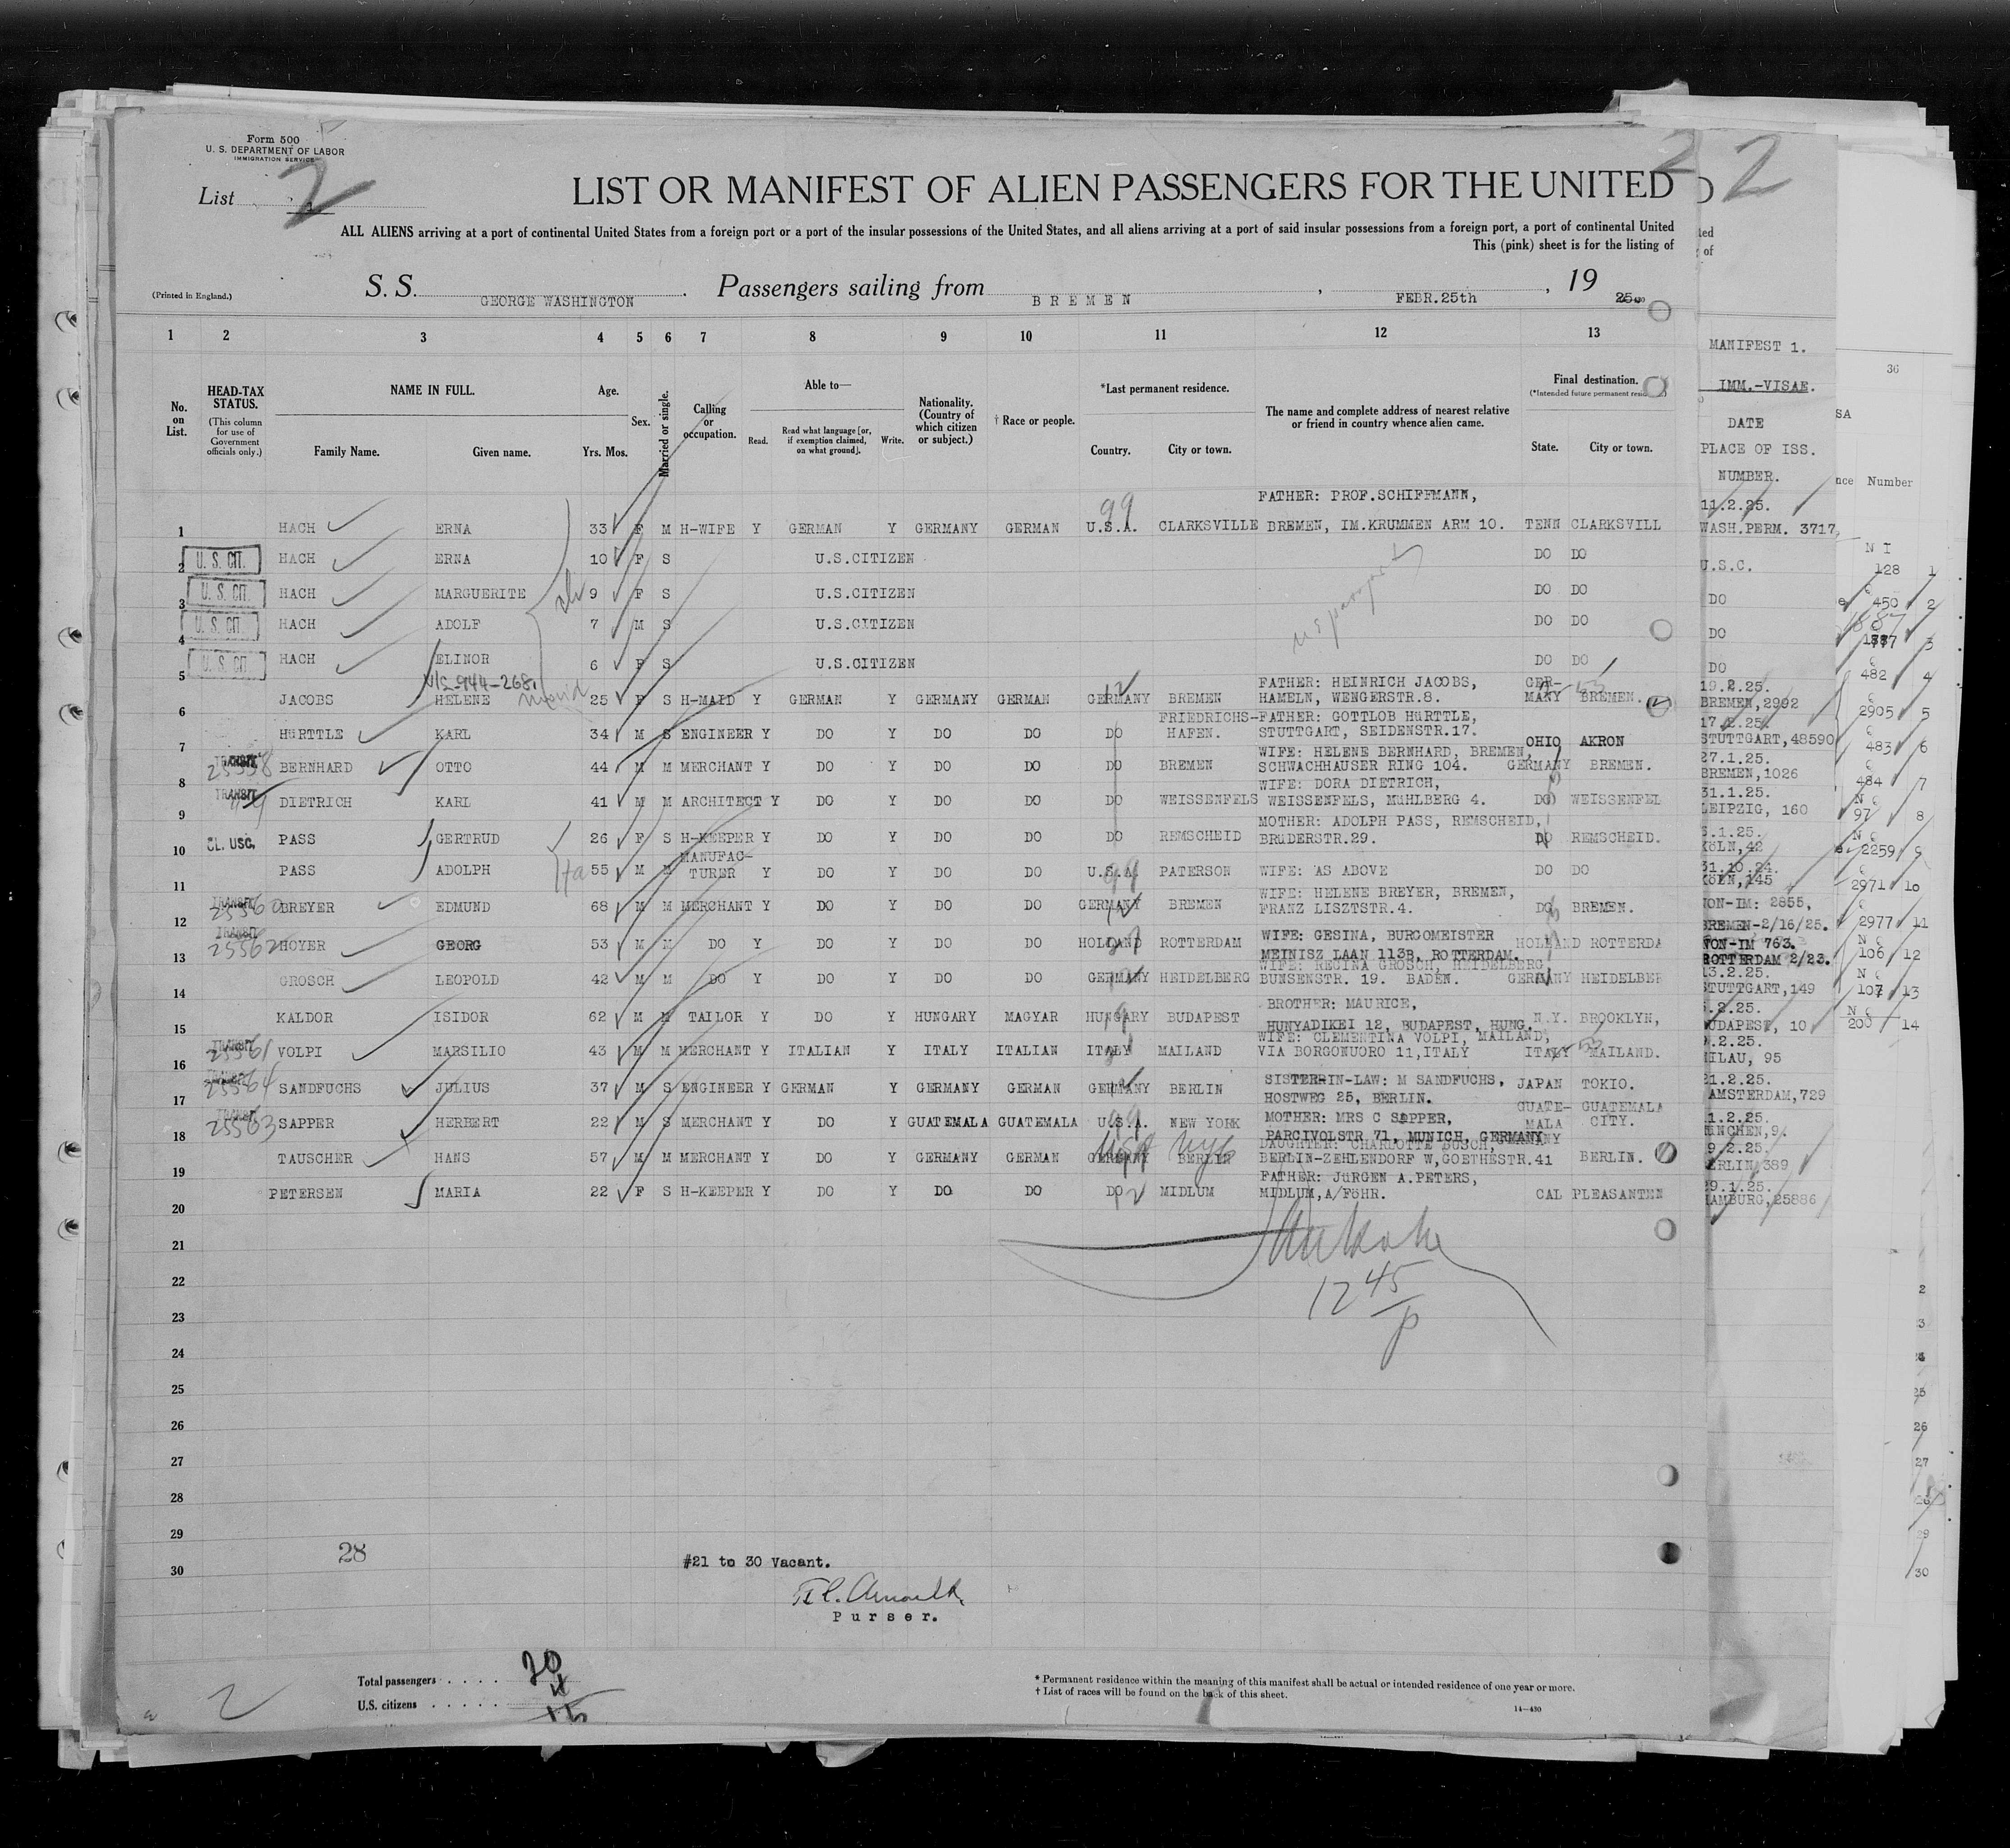 Form 500
U. S. DEPARTMENT OF LABOR
IMMIGRATION SERVICE
List 2
2 2
LIST OR MANIFEST OF ALIEN PASSENGERS FOR THE UNITED
ALL ALIENS arriving at a port of continental United States from a foreign port or a port of the insular possessions of the United States, and all aliens arriving at a port of said insular possessions from a foreign port, a port of continental United
This (pink) sheet is for the listing of
(Printed in England.)
S. S. GEORGE WASHINGTON. Passengers sailing from BREMEN, FEBR.25th, 19 25
1 2 3 4 5 6 7 8 9 10 11 12 13
No. on List.
HEAD-TAX STATUS.
(This column for use of Government officials only.)
NAME IN FULL.
Family Name. Given name.
Age.
Yrs. Mos.
Sex.
Married or single.
Calling or occupation.
Able to—
Read. Read what language [or, if exemption claimed, on what ground]. Write.
Nationality. (Country of which citizen or subject.)
† Race or people.
*Last permanent residence.
Country. City or town.
The name and complete address of nearest relative or friend in country whence alien came.
Final destination.
(*Intended future permanent residence)
State. City or town.
MANIFEST 1.
IMM.-VISAE.
DATE
PLACE OF ISS.
NUMBER.
36
SA
nce Number
1 HACH ERNA 33 F M H-WIFE Y GERMAN Y GERMANY GERMAN U.S.A. 99 CLARKSVILLE FATHER: PROF.SCHIFFMANN, BREMEN, IM.KRUMMEN ARM 10. TENN CLARKSVILL 11.2.25. WASH.PERM. 3717
2 U. S. CIT. HACH ERNA 10 F S U.S.CITIZEN DO DO U.S.C.
3 U. S. CIT. HACH MARGUERITE 9 F S U.S.CITIZEN DO DO DO
4 U. S. CIT. HACH ADOLF 7 M S U.S.CITIZEN DO DO DO
5 U. S. CIT. HACH ELINOR 6 F S U.S.CITIZEN DO DO DO
us passport
6 JACOBS HELENE 25 F S H-MAID Y GERMAN Y GERMANY GERMAN GERMANY BREMEN FATHER: HEINRICH JACOBS, HAMELN, WENGERSTR.8. GER-MANY BREMEN. 19.2.25. BREMEN,2902
7 HüRTTLE KARL 34 M S ENGINEER Y DO Y DO DO DO FRIEDRICHS-HAFEN. FATHER: GOTTLOB HüRTTLE, STUTTGART, SEIDENSTR.17. OHIO AKRON 17.2.25. STUTTGART,48590
8 TRANSIT 25558 BERNHARD OTTO 44 M M MERCHANT Y DO Y DO DO DO BREMEN WIFE: HELENE BERNHARD, BREMEN, SCHWACHHAUSER RING 104. GERMANY BREMEN. 27.1.25. BREMEN,1026
9 TRANSIT DIETRICH KARL 41 M M ARCHITECT Y DO Y DO DO DO WEISSENFELS WIFE: DORA DIETRICH, WEISSENFELS, MüHLBERG 4. DO WEISSENFEL 31.1.25. LEIPZIG, 160
10 CL. USC, PASS GERTRUD 26 F S H-KEEPER Y DO Y DO DO DO REMSCHEID MOTHER: ADOLPH PASS, REMSCHEID, BRüDERSTR.29. DO REMSCHEID. KöLN,42
11 PASS ADOLPH 55 M M MANUFAC-TURER Y DO Y DO DO U.S.A. PATERSON WIFE: AS ABOVE DO DO 31.10.24. KöLN,145
12 TRANSIT 25560 BREYER EDMUND 68 M M MERCHANT Y DO Y DO DO GERMANY BREMEN WIFE: HELENE BREYER, BREMEN, FRANZ LISZTSTR.4. DO BREMEN. NON-IM: 2855, BREMEN-2/16/25.
13 TRANSIT 25562 HOYER GEORG 53 M M DO Y DO Y DO DO HOLLAND ROTTERDAM WIFE: GESINA, BURGOMEISTER MEINISZ LAAN 113B, ROTTERDAM. HOLLAND ROTTERDA NON-IM 763. ROTTERDAM 2/23.
14 GROSCH LEOPOLD 42 M M DO Y DO Y DO DO GERMANY HEIDELBERG WIFE: REGINA GROSCH, HEIDELBERG BUNSENSTR. 19. BADEN. GERMANY HEIDELBER 13.2.25. STUTTGART,149
15 KALDOR ISIDOR 62 M M TAILOR Y DO Y HUNGARY MAGYAR HUNGARY BUDAPEST BROTHER: MAURICE, HUNYADIKEI 12, BUDAPEST, HUNG. N.Y. BROOKLYN, BUDAPEST, 10
16 TRANSIT 25561 VOLPI MARSILIO 43 M M MERCHANT Y ITALIAN Y ITALY ITALIAN ITALY MAILAND WIFE: CLEMENTINA VOLPI, MAILAND, VIA BORGONUORO 11,ITALY ITALY MAILAND. MILAU, 95
17 TRANSIT 25564 SANDFUCHS JULIUS 37 M S ENGINEER Y GERMAN Y GERMANY GERMAN GERMANY BERLIN SISTERRIN-LAW: M SANDFUCHS, HOSTWEG 25, BERLIN. JAPAN TOKIO. 21.2.25. AMSTERDAM,729
18 TRANSIT 25563 SAPPER HERBERT 22 M S MERCHANT Y DO Y GUATEMALA GUATEMALA U.S.A. NEW YORK MOTHER: MRS C SAPPER, PARCIVOLSTR 71, MUNICH, GERMANY GUATE-MALA GUATEMALA CITY. MüNCHEN,9.
19 TAUSCHER HANS 57 M M MERCHANT Y DO Y GERMANY GERMAN GERMANY BERLIN USA NYC DAUGHTER: CHARLOTTE BUSCH, BERLIN-ZEHLENDORF W,GOETHESTR.41 GERMANY BERLIN. BERLIN 389
20 PETERSEN MARIA 22 F S H-KEEPER Y DO Y DO DO DO MIDLUM FATHER: JüRGEN A.PETERS, MIDLUM,A/FöHR. CAL PLEASANTEN 29.1.25. HAMBURG,25886
12 45/p
21
22
23
24
25
26
27
28
29
30
28
#21 to 30 Vacant.
Purser.
Total passengers 20
U.S. citizens 4
2
* Permanent residence within the meaning of this manifest shall be actual or intended residence of one year or more.
† List of races will be found on the back of this sheet.
14—430
N I
128 1
450 2
3
482 4
2905 5
483 6
484 7
97 8
2259 9
2971 10
2977 11
106 12
107 13
200 14